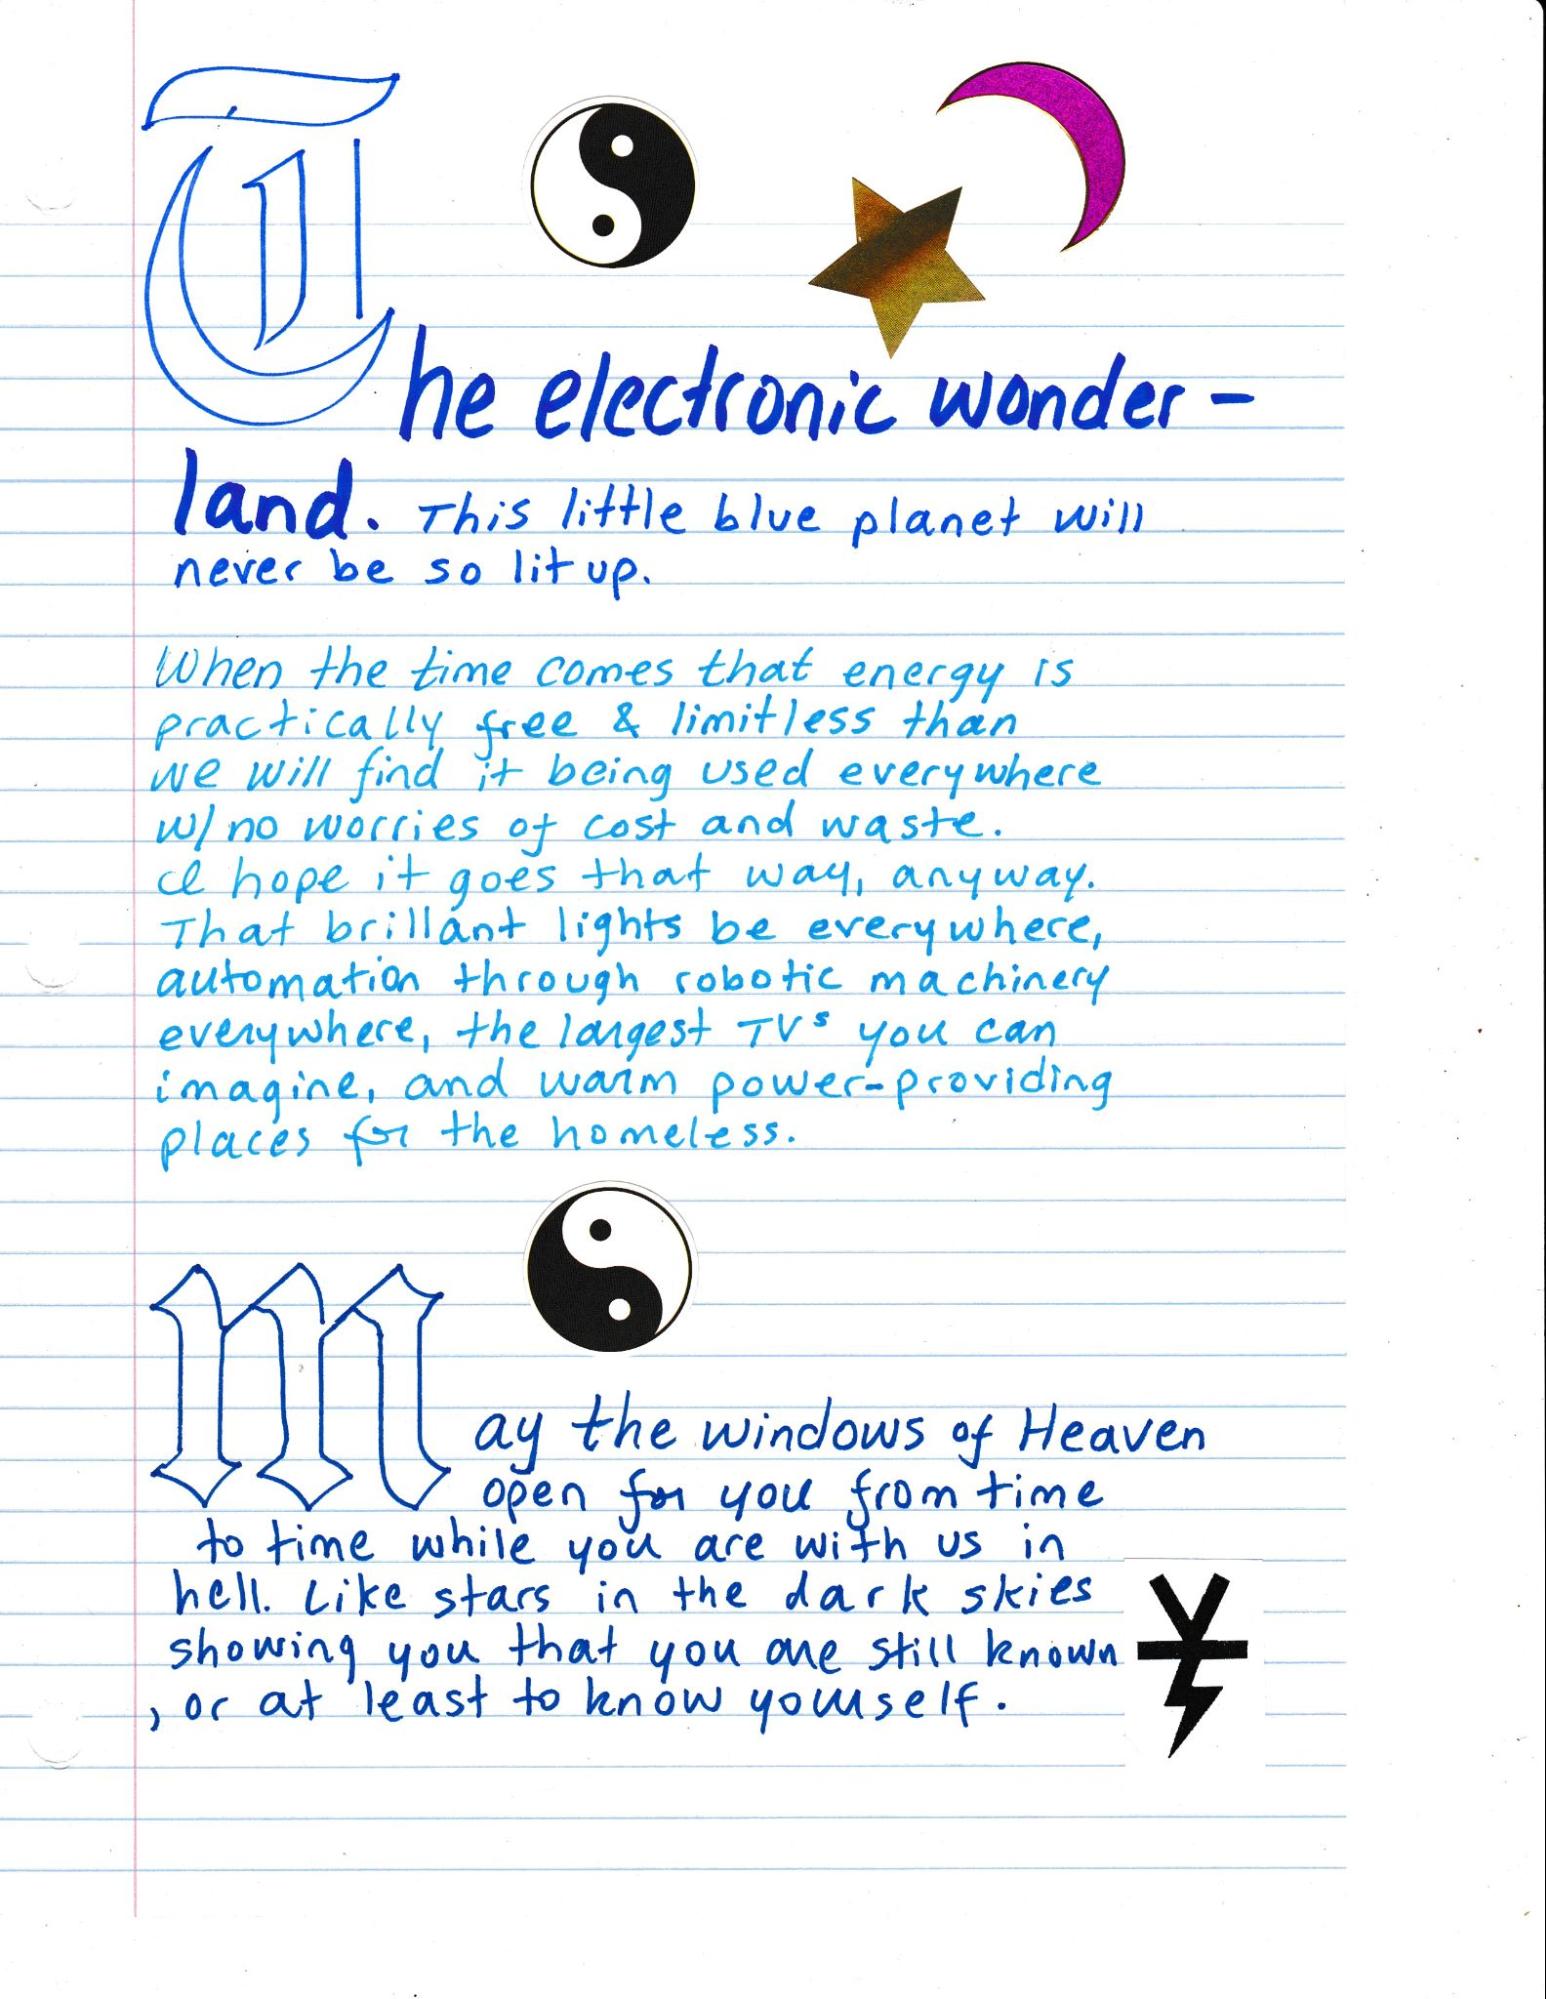 The electronic wonder-
land. This little blue planet will
never be so lit up.
When the time comes that energy is
practically free & limitless than
we will find it being used everywhere
w/ no worries of cost and waste.
I hope it goes that way, anyway.
That brillant lights be everywhere,
automation through robotic machinery
everywhere, the largest TVs you can
imagine, and warm power-providing
places for the homeless.
May the windows of Heaven
open for you from time
to time while you are with us in
hell. Like stars in the dark skies
showing you that you are still known
, or at least to know yourself.